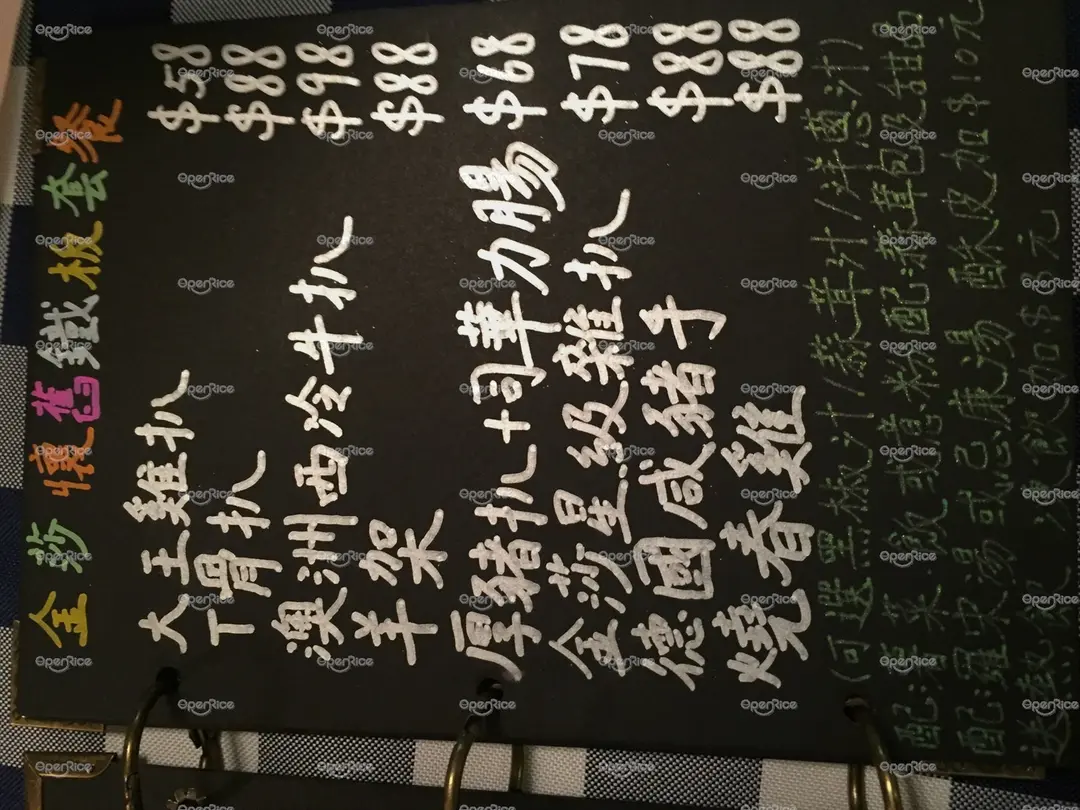 金莎懷舊鐵板套餐
大王雞扒 $58
T骨扒 $88
澳洲西冷牛扒 $98
羊架 $88
厚豬扒+司華力腸 $68
金莎星級雜扒 $78
德國咸豬手 $88
燒春雞 $88
(可選黑椒汁/蒜茸汁/洋蔥汁)
配:薯 飯或意粉 配:蒜茸包及甜品
配:羅宋湯 或忌廉湯 酥皮加$10元
送熱飲 凍飲加$8元